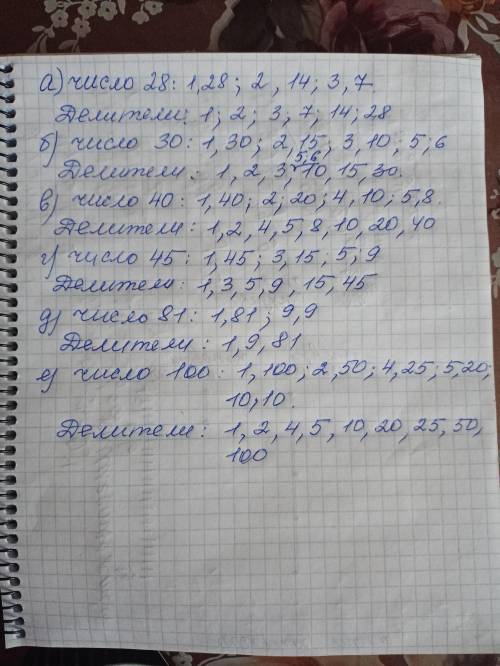 а) число 28: 1,28; 2, 14; 3,7
Делители: 1; 2; 3, 7; 14; 28
б) число 30: 1,30; 2,15, 3,10; 5; 6
5,6
Делители: 1, 2, 3, 10, 15, 30.
в) число 40: 1,40; 2; 20; 4,10; 5,8.
Делители: 1, 2, 4, 5, 8, 10, 20, 40
г) число 45: 1,45; 3,15; 5; 9
Делители: 1, 3, 5, 9, 15, 45
д) число 81: 1,81; 9,9
Делители: 1, 9, 81
е) число 100: 1,100; 2,50; 4,25; 5,20;
10,10.
Делители: 1, 2, 4, 5, 10, 20, 25, 50,
100